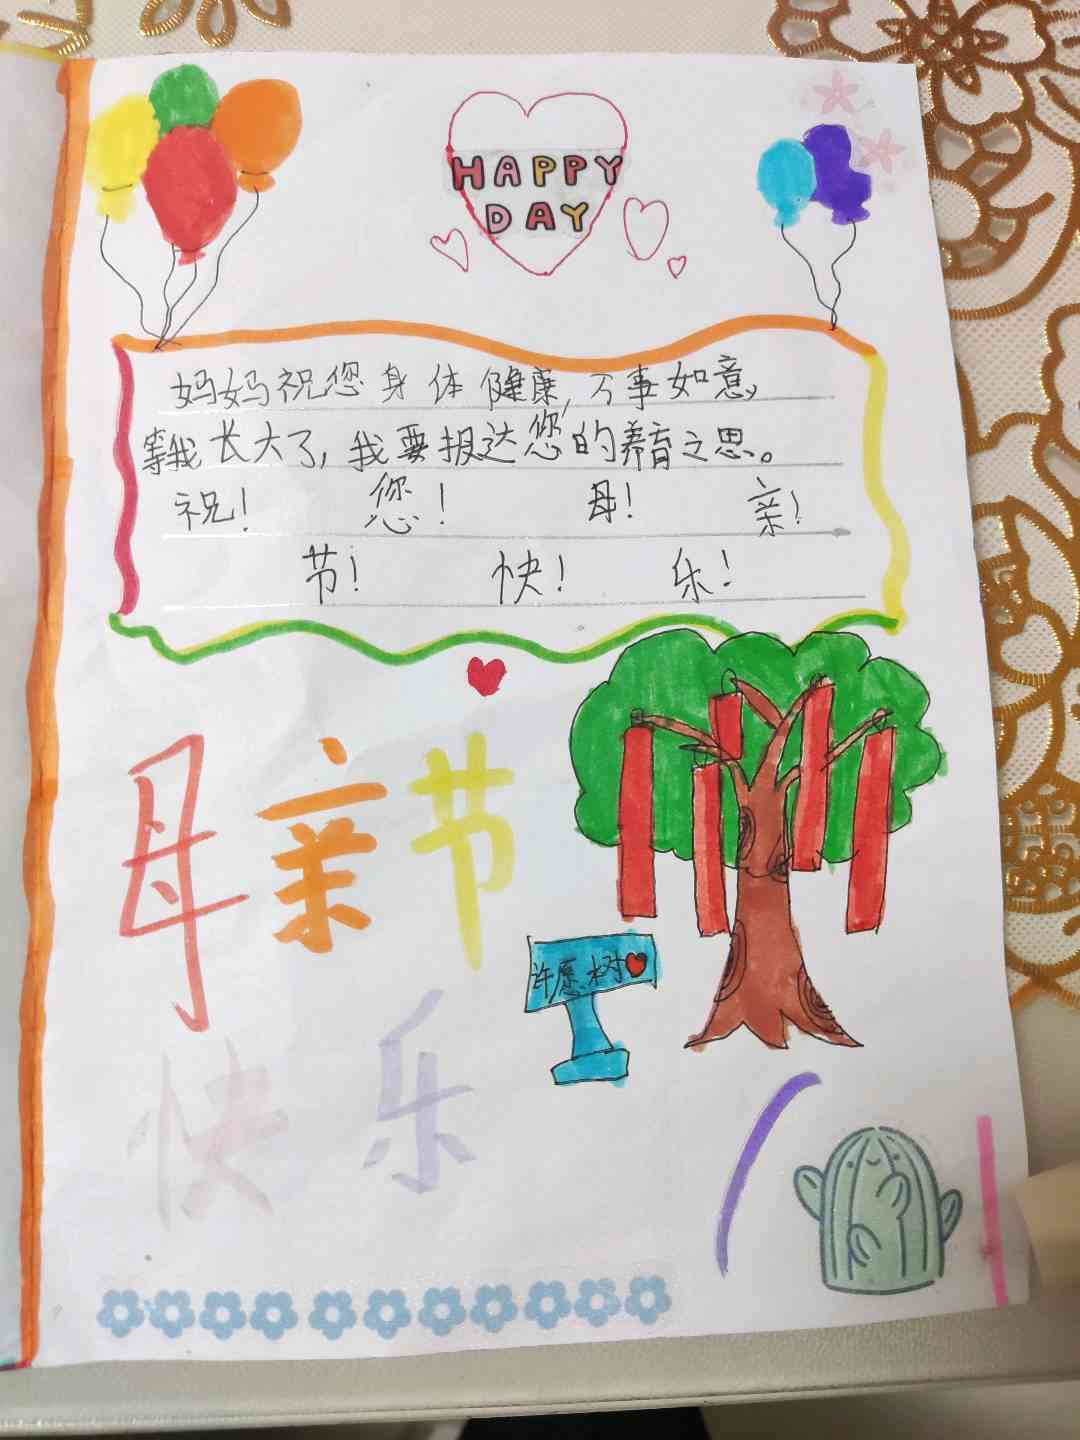 HAPPY
DAY
妈妈祝您身体健康,万事如意,
等我长大了,我要报达您的养育之恩。
祝! 您! 母! 亲!
节! 快! 乐!
母亲节
许愿树
快乐